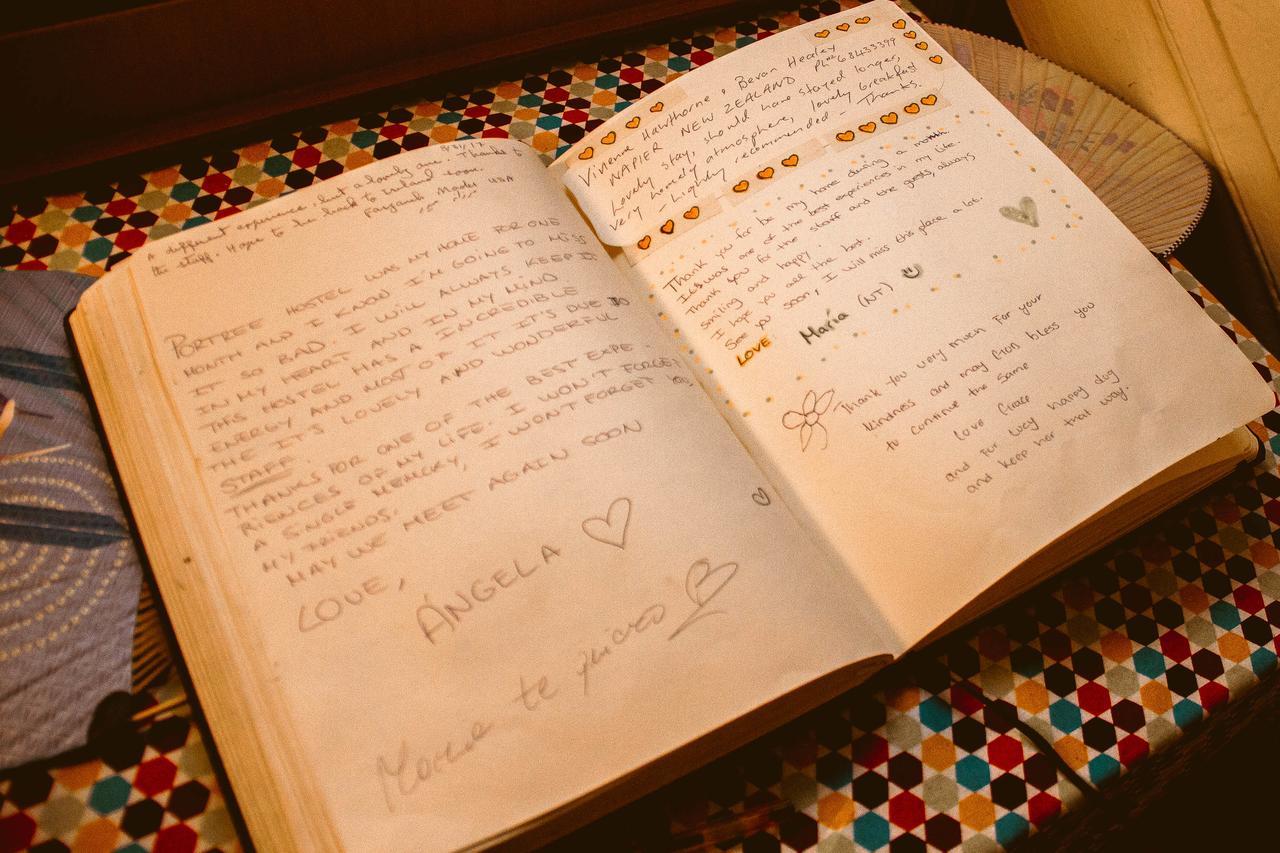 A different experience but a lovely one. Thanks to
the staff. Hope to be back to Ireland soon.
USA
PORTREE HOSTEL WAS MY HOME FOR ONE
MONTH AND I KNOW I'M GOING TO MISS
IT SO BAD. I WILL ALWAYS KEEP IT
IN MY HEART AND IN MY MIND
THIS HOSTEL HAS A INCREDIBLE
ENERGY AND MOST OF IT IT'S DUE TO
THE IT'S LOVELY AND WONDERFUL
STAFF.
THANKS FOR ONE OF THE BEST EXPE-
RIENCES OF MY LIFE. I WON'T FORGET
A SINGLE MEMORY, I WON'T FORGET YOU
MY FRIENDS.
MAY WE MEET AGAIN SOON
LOVE,
ÁNGELA
te quiero
Vivienne Hawthorne & Bevan Healey
NAPIER NEW ZEALAND Ph 68433399
Lovely stay, should have stayed longer,
very homely atmosphere, lovely breakfast
- Highly recommended - Thanks.
Thank you for be my home during a month.
It was one of the best experiences in my life.
Thank you for the staff and the guests, always
smiling and happy.
I hope you all the best.
See you soon, I will miss this place a lot.
LOVE
María (NT)
Thank you very much for your
kindness and may God bless you
to continue the same
love Grace
and fur wey happy dog
and keep her that way.